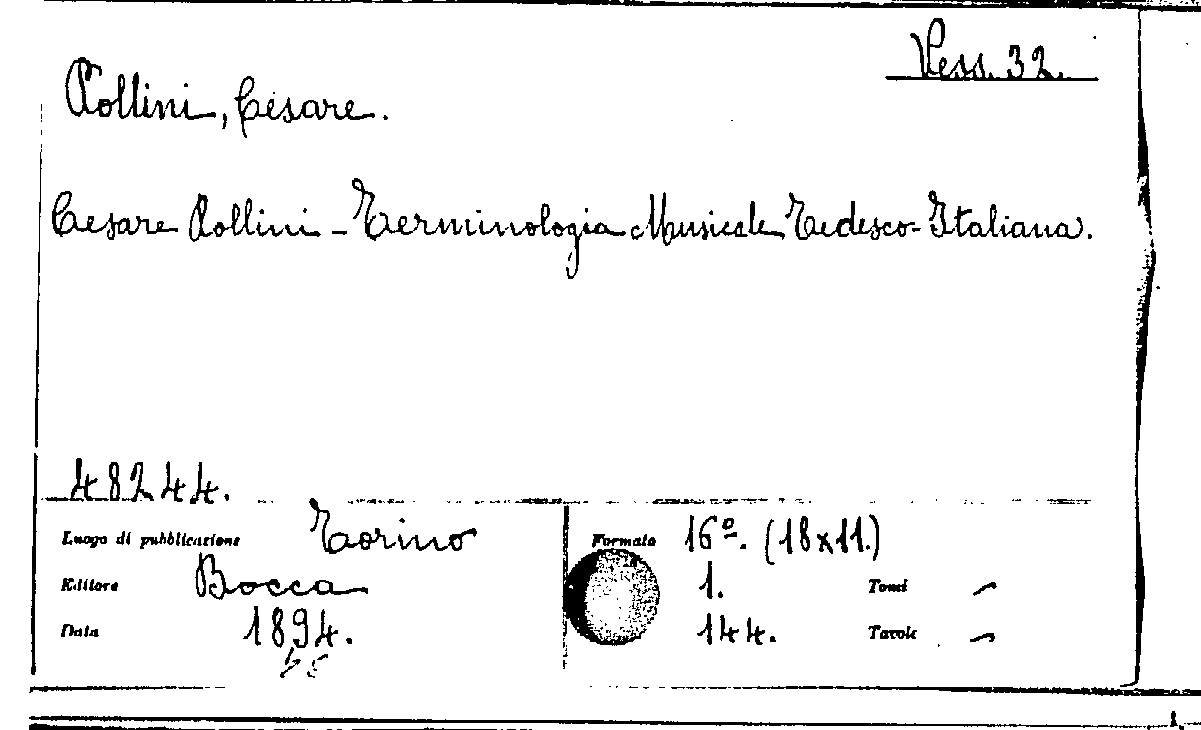 Vess. 32.
Pollini, Cesare.
Cesare Pollini - Terminologia Musicale Tedesco-Italiana.
48244.
Luogo di pubblicazione Torino Formato 16º. (18x11.)
Editore Bocca 1. Tomi -
Data 1894. 144. Tavole -
1.